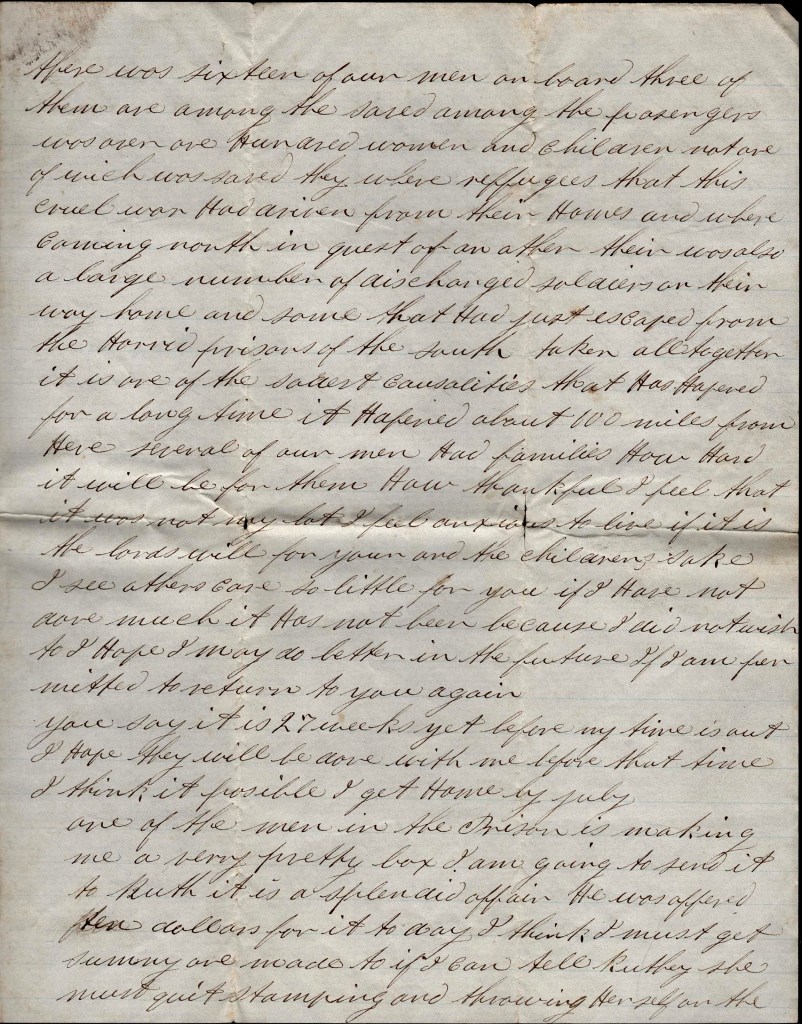 there was sixteen of our men on board three of
them are among the saved among the pasengers
was over one Hundred women and children not one
of wich was saved they where reffugees that this
cruel war Had driven from their Homes and where
Coming north in quest of an other their was also
a large number of discharged soldiers on their
way home and some that Had just escaped from
the Horrid prisons of the south taken alltogether
it is one of the sadest Causalities that Has Hapened
for a long time it Hapened about 100 miles from
Here several of our men Had families How Hard
it will be for them How thankful I feel that
it was not my lot I feel anxious to live if it is
the lords will for your and the childrens sake
I see others care so little for you if I Have not
done much it Has not been because I did not wish
to I Hope I may do better in the future If I am per
mitted to return to you again
you say it is 27 weeks yet before my time is out
I Hope they will be done with me before that time
I think it posible I get Home by july
one of the men in the Prison is making
me a verry pretty box I am going to send it
to Ruth it is a splendid affair He was offered
ten dollars for it to day I think I must get
sunny one made to if I can tell Ruthey she
must quit stamping and throwing Herself on the